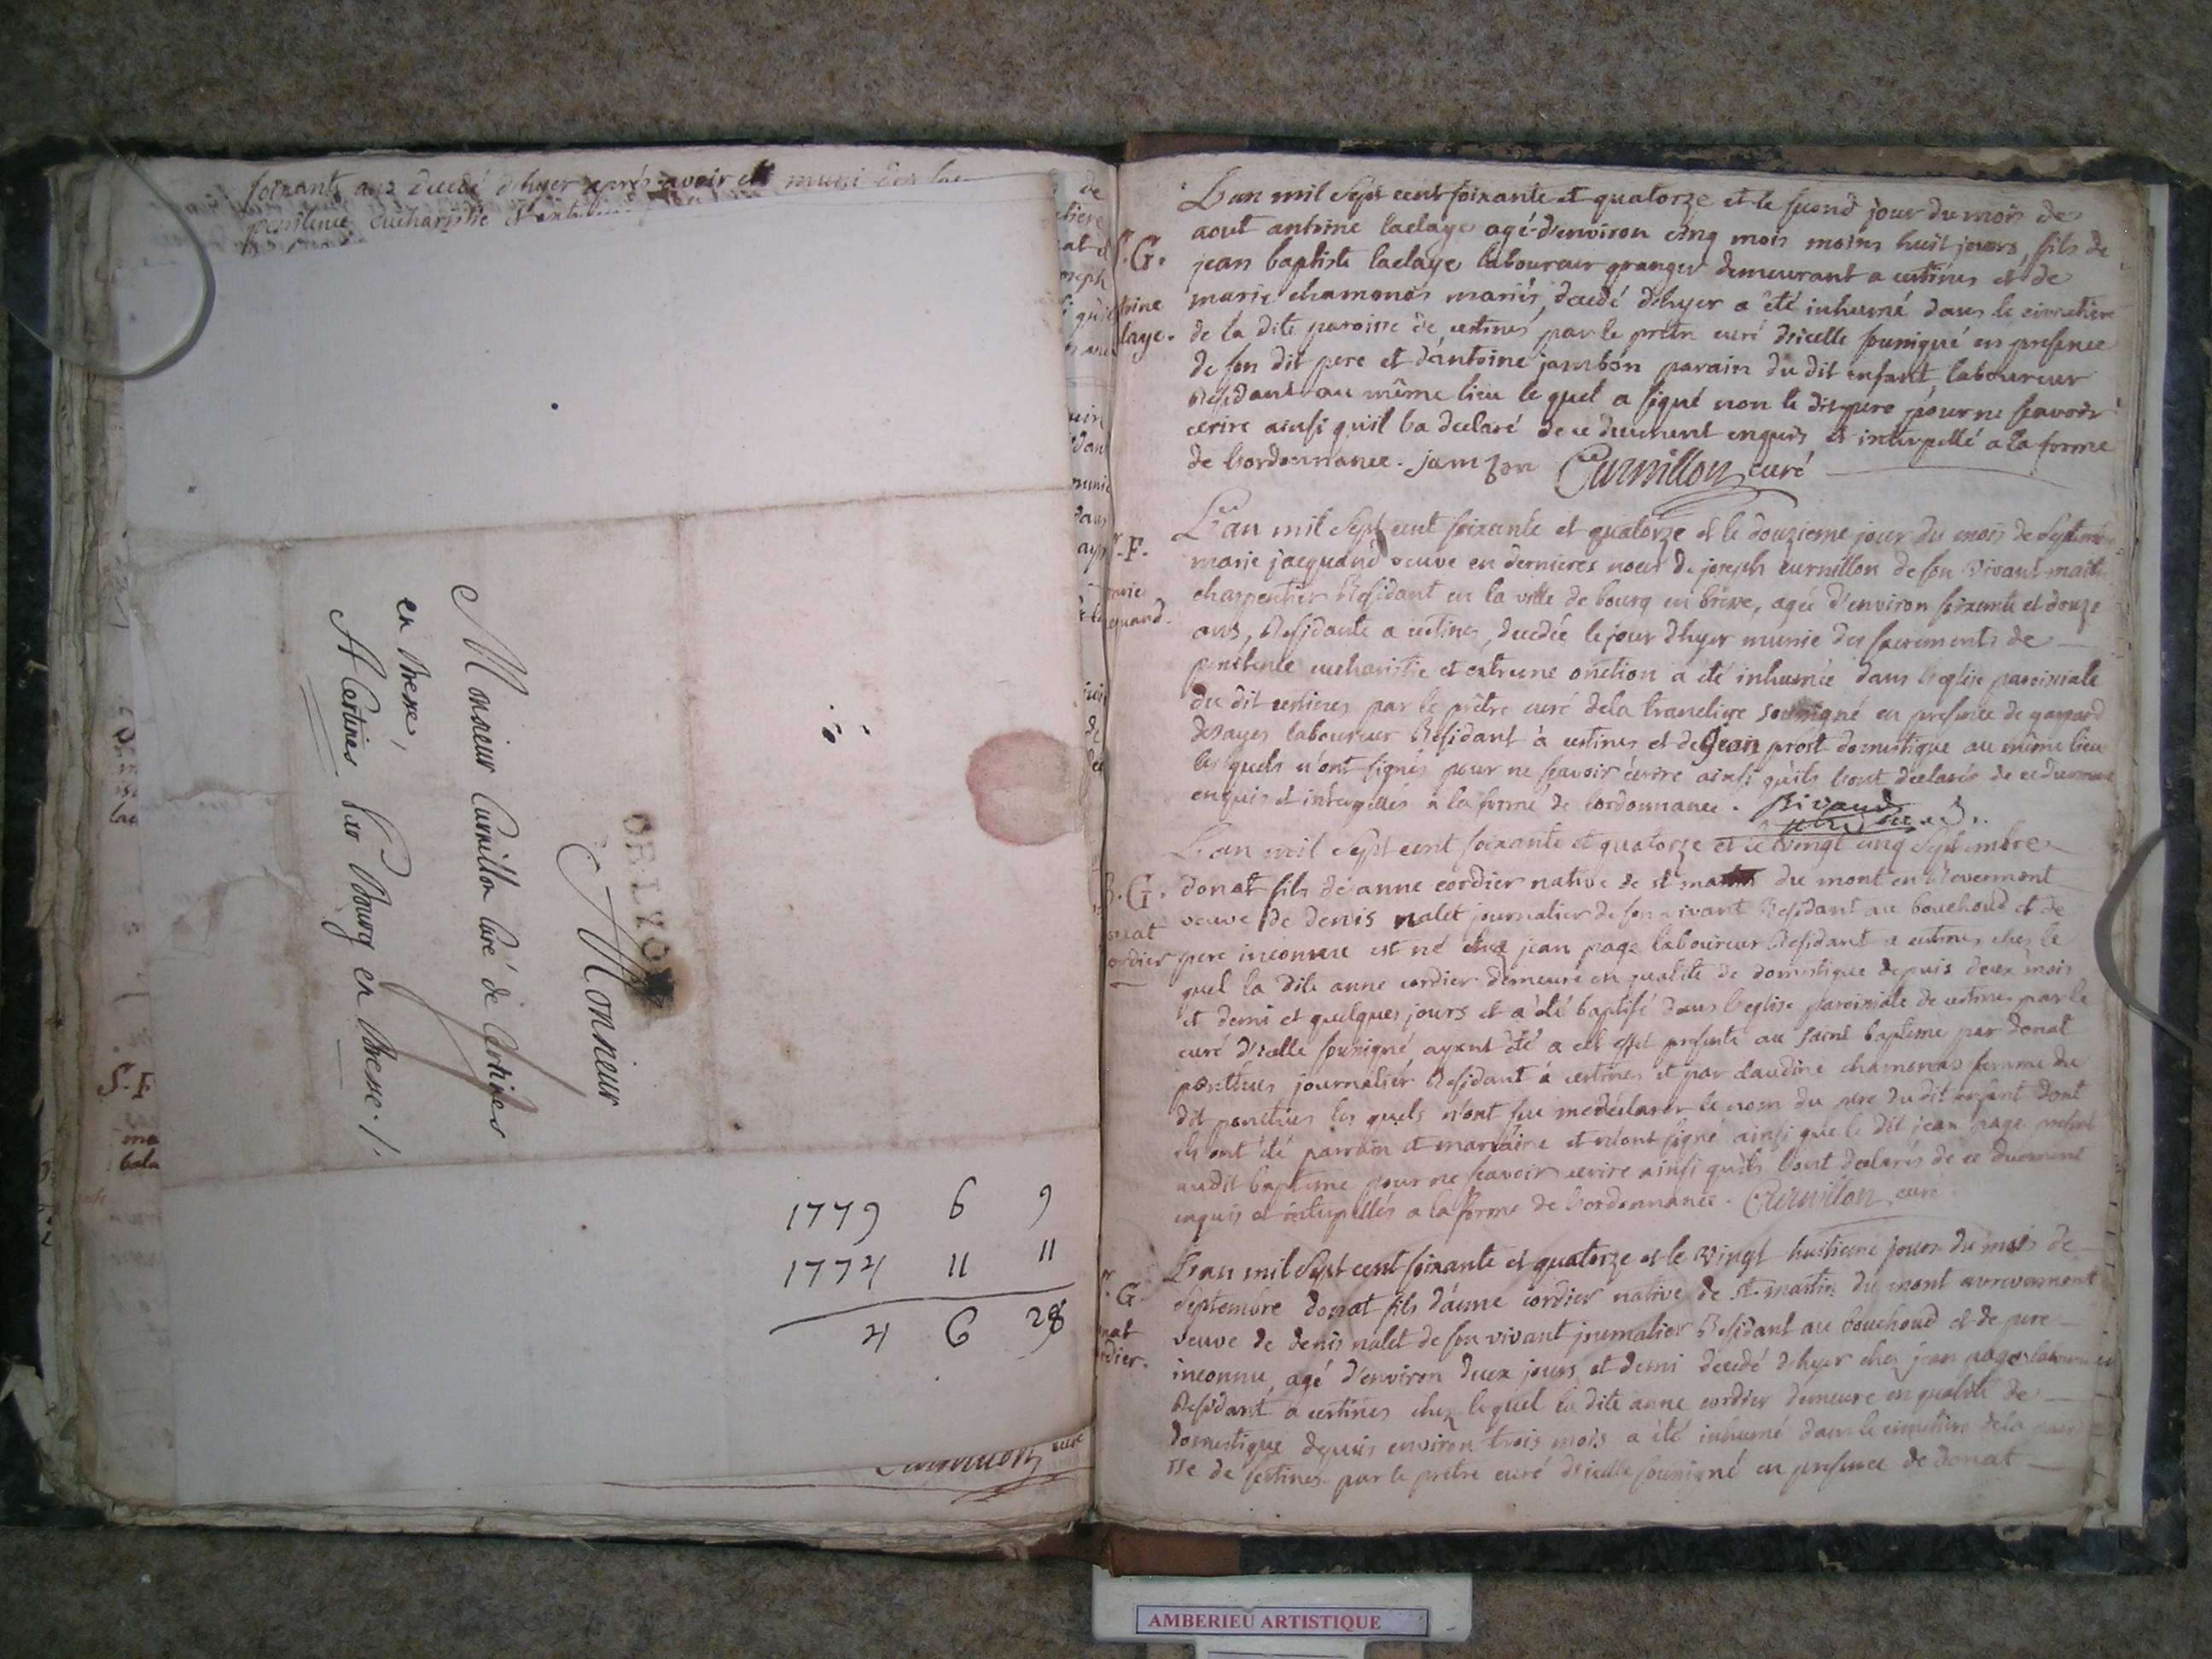 soixante ans decedé d'hyer après avoir été muni des
penitence eucharistie et
DE LYON
Monsieur
Monsieur Curnillon Curé de Certines
en Bresse,
A Certines par Bourg en Bresse./.
1779 6 9
1774 11 11
4 6 28
S.F
Curnillon curé
L'an mil sept cent soixante et quatorze et le second jour du mois de
aout antoine laclaye agé d'environ cinq mois moins huit jours, fils de
S.G. jean baptiste laclaye laboureur granger demeurant a certines et de
marie chamonas mariés, decedé d'hyer a été inhumé dans le cimetiere
de la dite paroisse de certines par le prêtre curé d'icelle soussigné en presence
de son dit pere et d'antoine jambon parain du dit enfant laboureur
Residant au même lieu le quel a signé non le dit pere pour ne scavoir
ecrire ainsi qu'il l'a declaré de ce duement enquis et interpellé a la forme
de l'ordonnance. jambon Curnillon curé
L'an mil sept cent soixante et quatorze et le douzieme jour du mois de septembre
marie jacquand veuve en dernieres noces de joseph curnillon de son vivant maitre
charpentier Residant en la ville de bourg en bresse, agée d'environ soixante et douze
ans, Residante a certines, decedée le jour d'hyer munie des sacrements de
penitence eucharistie et extreme onction a été inhumée dans l'eglise paroissiale
du dit certines par le prêtre curé de la tranclière soussigné en presence de gaspard
desayes laboureur Residant à certines et de Jean prost domestique au même lieu
les quels n'ont signés pour ne scavoir écrire ainsi qu'ils l'ont declarés de ce duement
enquis et interpellés a la forme de l'ordonnance.
L'an mil sept cent soixante et quatorze et le vingt cinq septembre
donat fils de anne cordier native de st martin du mont en Revermont
veuve de denis nalet journalier de son vivant Residant au bouchoud et de
pere inconnu est né chez jean page laboureur Residant a certines chez le
quel la dite anne cordier demeure en qualité de domestique depuis deux mois
et demi et quelques jours et a été baptisé dans l'eglise paroissiale de certines par le
curé d'icelle soussigné, ayant été a cet effet presenté au saint baptême par donat
ponthus journalier Residant à certines et par claudine chamonas femme du
dit ponthus les quels n'ont su me declarer le nom du pere du dit enfant dont
ils ont été parrain et marraine et n'ont signé ainsi que le dit jean page present
audit baptême pour ne scavoir ecrire ainsi qu'ils l'ont declarés de ce duement
enquis et interpellés a la forme de l'ordonnance. Curnillon curé
L'an mil sept cent soixante et quatorze et le vingt huitieme jour du mois de
septembre donat fils d'anne cordier native de st martin du mont en revermont
veuve de denis nalet de son vivant journalier Residant au bouchoud et de pere
inconnu, agé d'environ deux jours et demi decedé d'hyer chez jean page laboureur
Residant a certines chez le quel la dite anne cordier demeure en qualité de
domestique depuis environ trois mois a été inhumé dans le cimetiere de la paroi
sse de certines par le prêtre curé d'icelle soussigné en presence de donat
AMBERIEU ARTISTIQUE